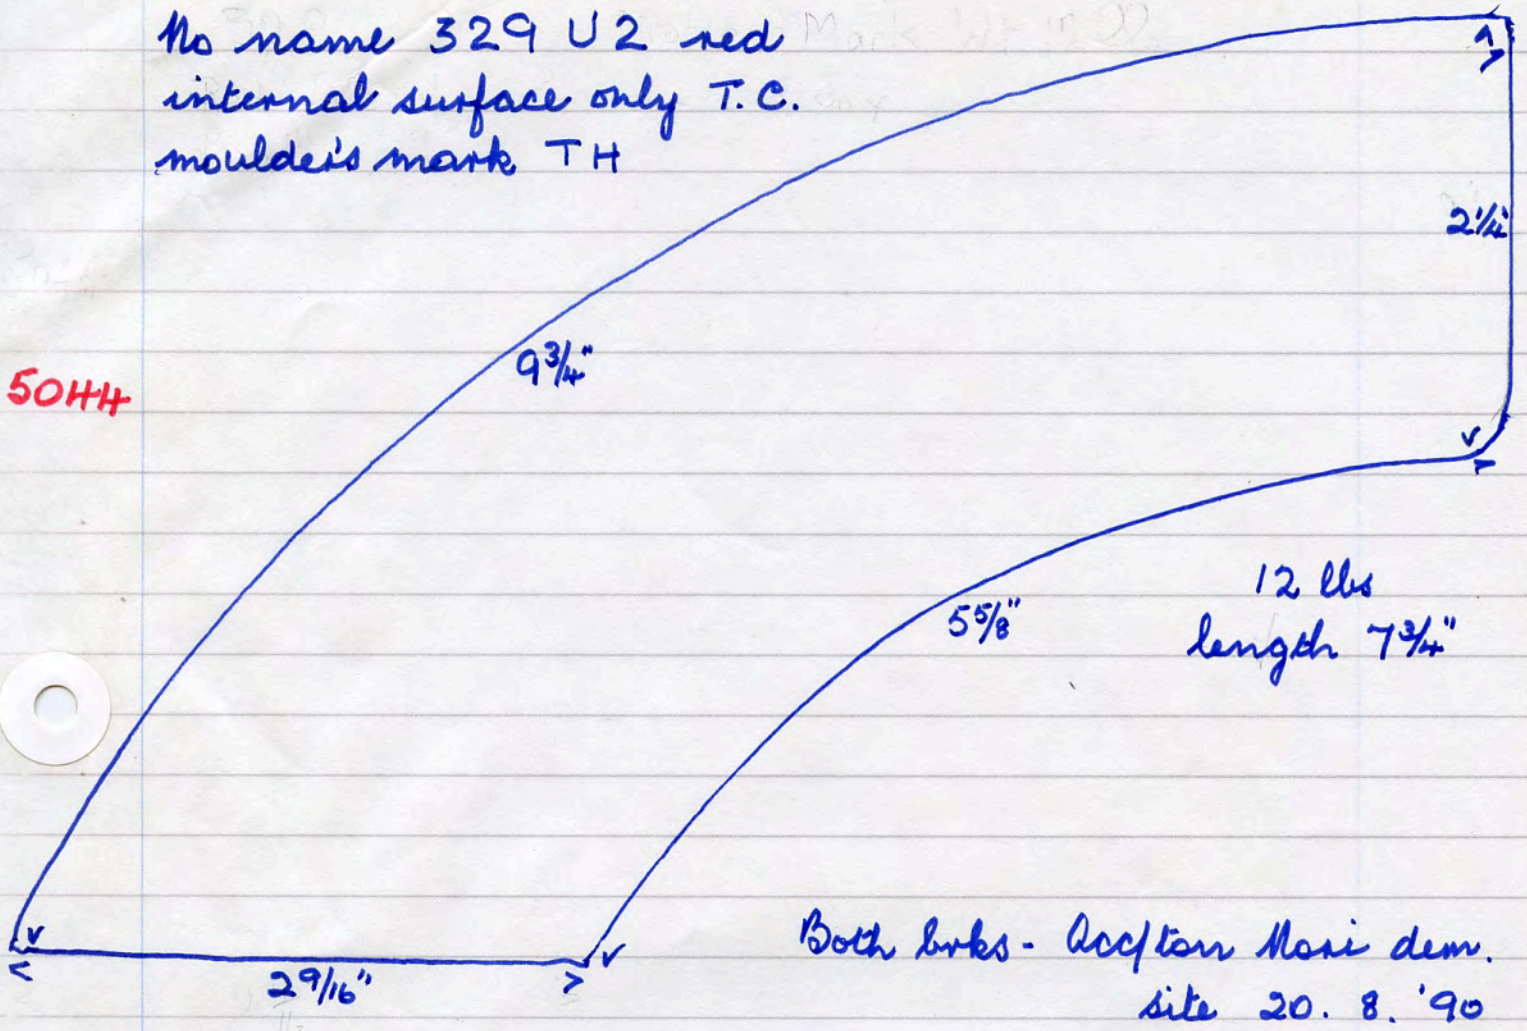 No name 329 U2 red
internal surface only T.C.
moulder's mark TH
2 1/4
9 3/4"
50HH
5 5/8"
12 lbs
length 7 3/4"
Both brks - Accton dem.
site 20. 8. '90
2 9/16"